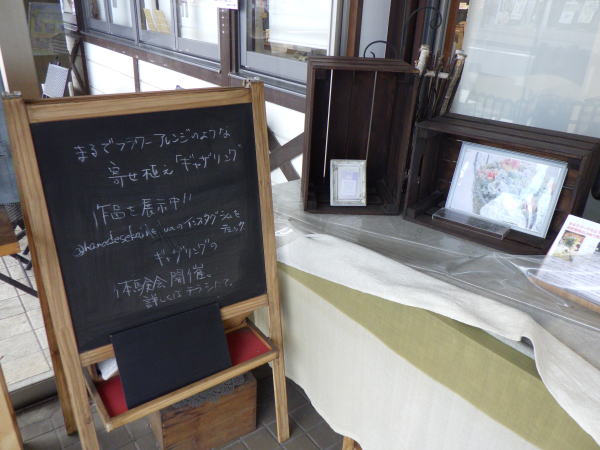 まるでフラワーアレンジのような
寄せ植え「ギャザリング」
作品を展示中!!
のインスタグラムを
チェック
ギャザリングの
体験会開催。
詳しくはチラシにて。